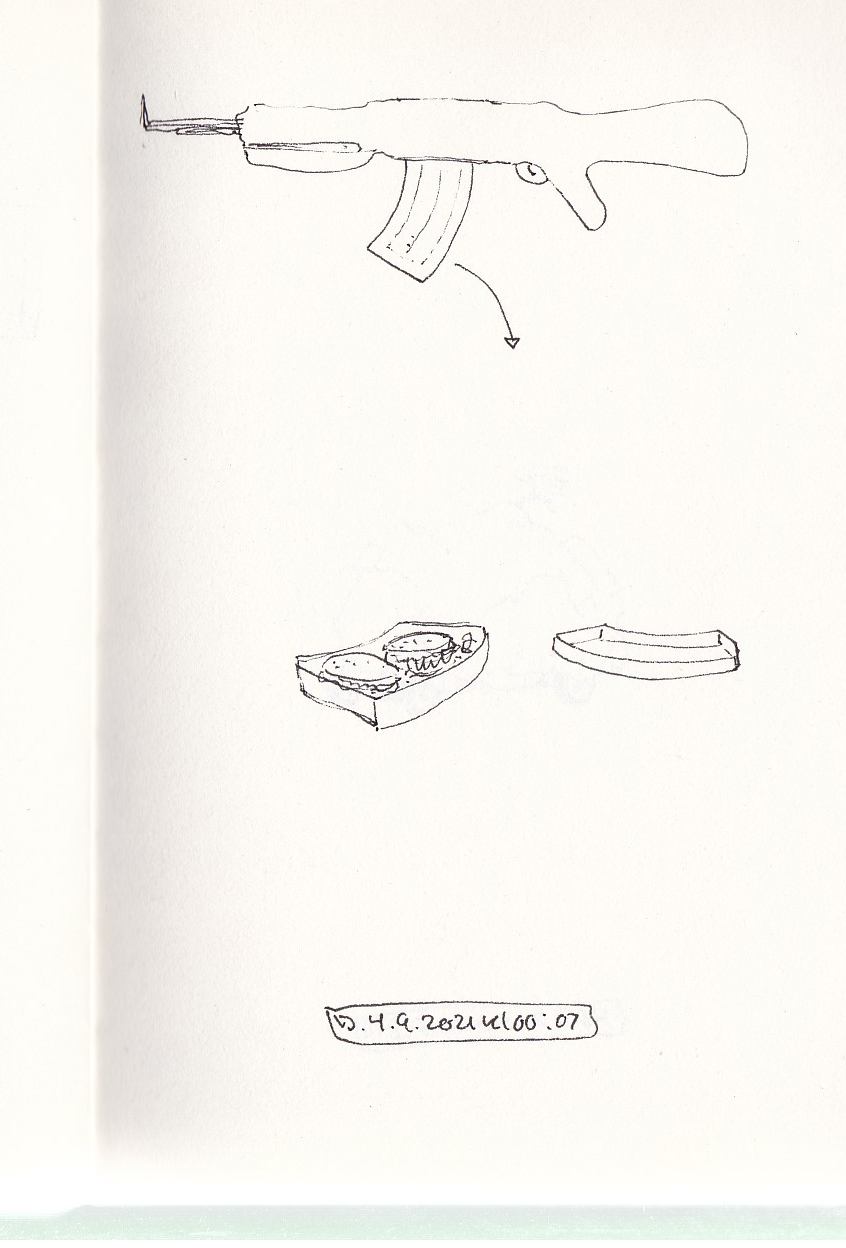 D. 4.9.2021 kl 00:07